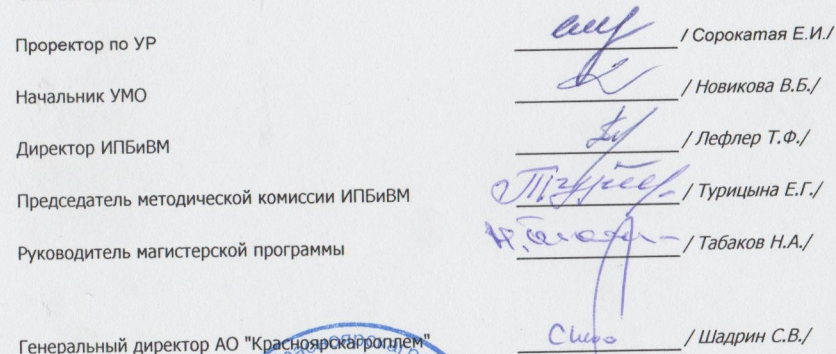 Проректор по УР / Сорокатая Е.И./
Начальник УМО / Новикова В.Б./
Директор ИПБиВМ / Лефлер Т.Ф./
Председатель методической комиссии ИПБиВМ / Турицына Е.Г./
Руководитель магистерской программы / Табаков Н.А./
Генеральный директор АО "Красноярскагроплем" / Шадрин С.В./